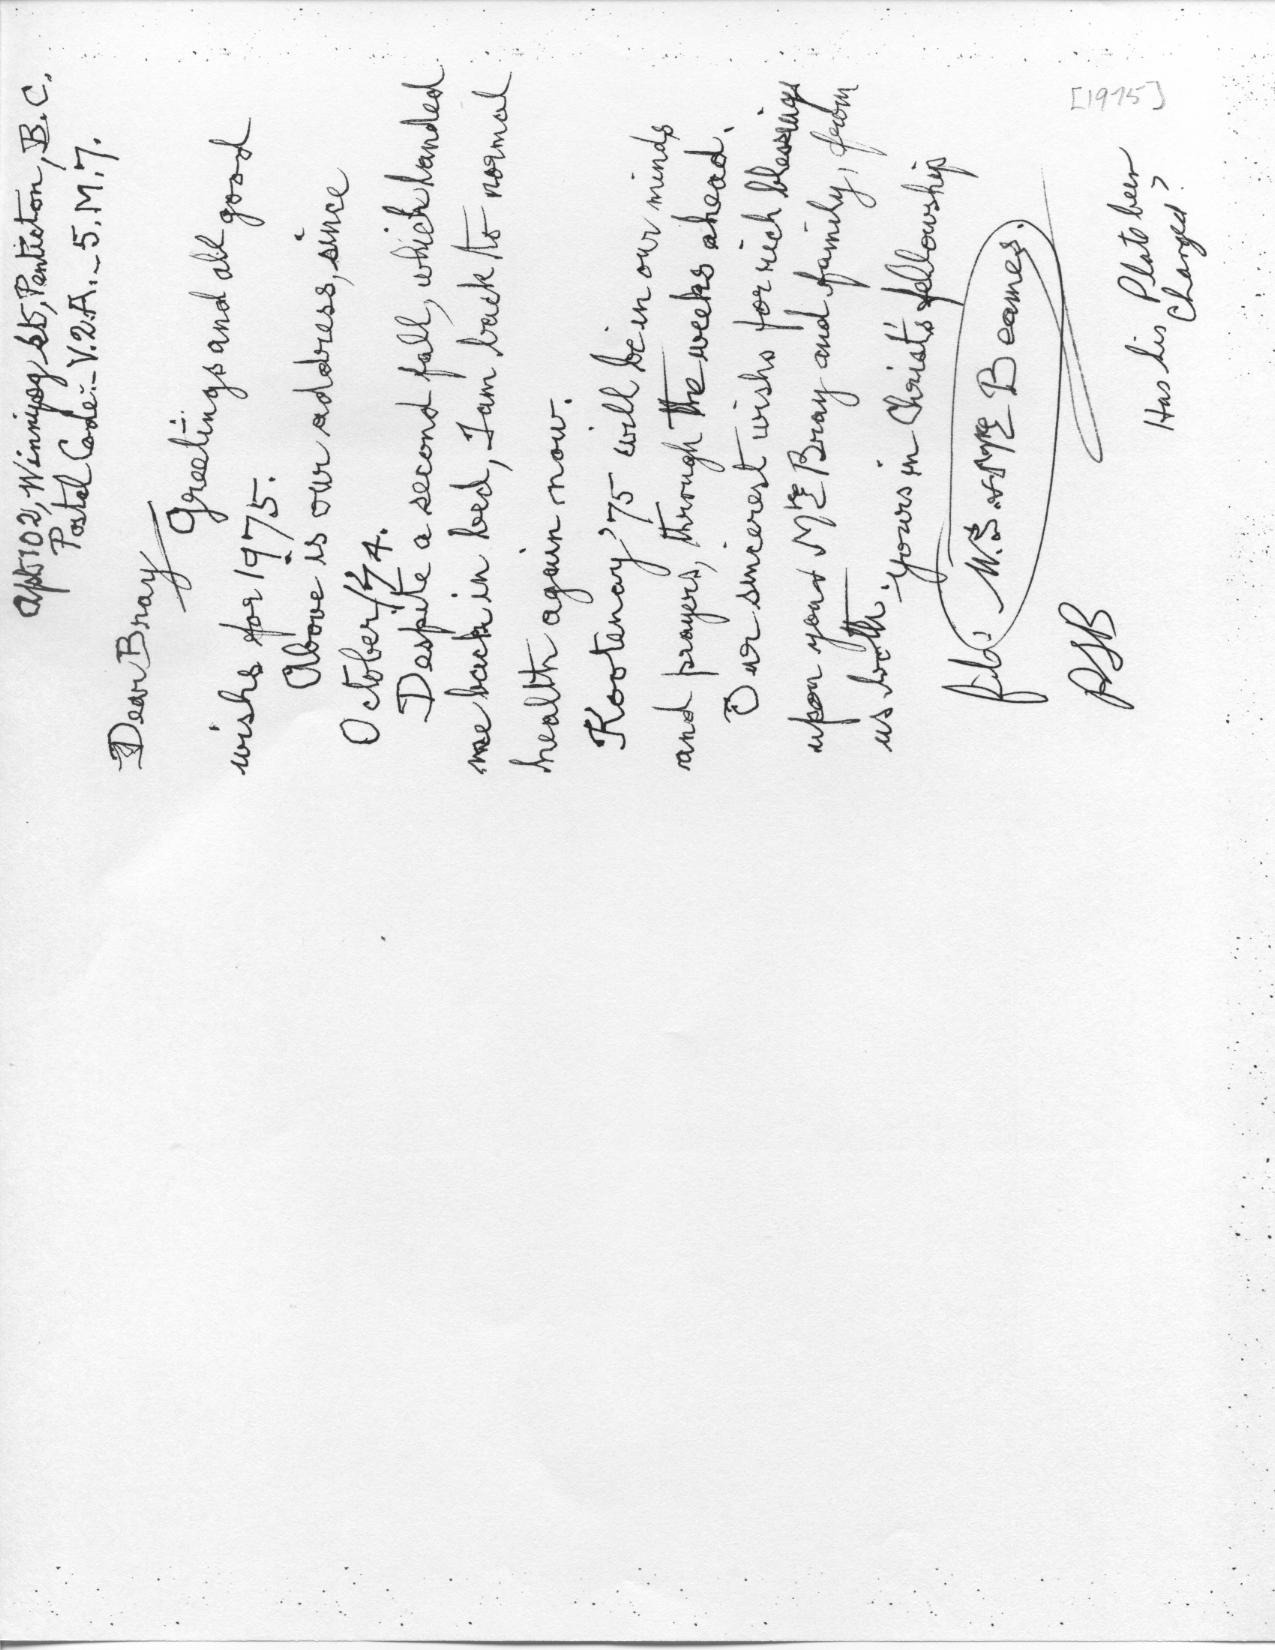 Apt 102, Winnipeg St, Penticton, B.C.
Postal Code:- V.2.A.-5.M.7.
Dear Bray
Greetings and all good
wishs for 1975.
Above is our address, since
October/74.
Despite a second fall, which landed
me back in bed, I am back to normal
health again now.
Kootenay '75 will be in our minds
and prayers, through the weeks ahead.
Our sincerest wishs for rich blessings
upon your Mrs E Bray and family, from
us both.
Yours in Christ's fellowship
W.S. & Mrs E Beames.
file
PSB
Has his Plate been
Changed?
[1975]